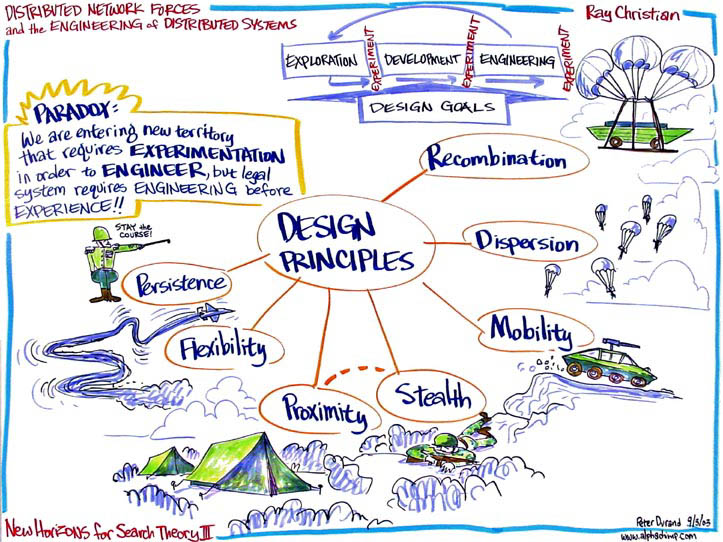 DISTRIBUTED NETWORK FORCES
and the ENGINEERING of DISTRIBUTED SYSTEMS
Ray Christian
EXPLORATION
EXPERIMENT
DEVELOPMENT
EXPERIMENT
ENGINEERING
EXPERIMENT
DESIGN GOALS
PARADOX:
We are entering new territory
that requires EXPERIMENTATION
in order to ENGINEER, but legal
system requires ENGINEERING before
EXPERIENCE!!
Recombination
STAY the
COURSE!
DESIGN
PRINCIPLES
Dispersion
Persistence
Mobility
Flexibility
Stealth
Proximity
New Horizons for Search Theory III
Peter Durand 9/3/03
www.alphachimp.com